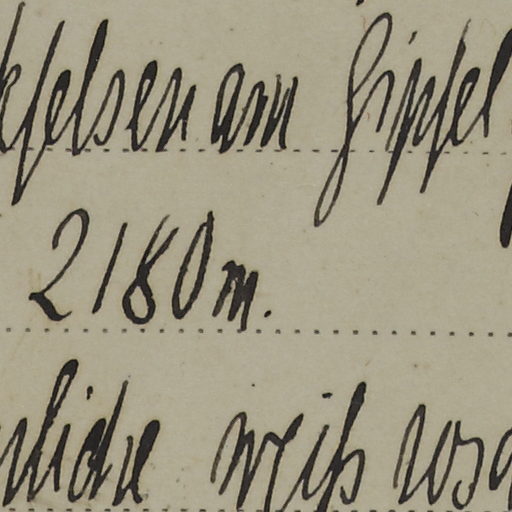 kfelsen am Gipfel
2180 m.
rliche weiß rosa